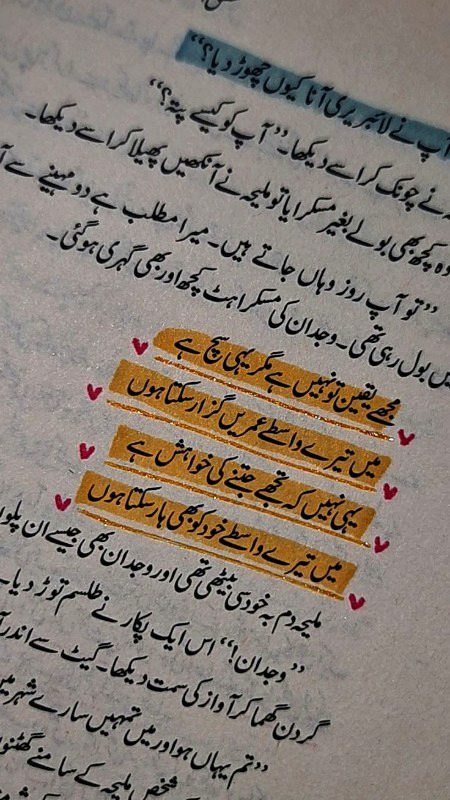 آپ نے لائبریری آنا کیوں چھوڑ دیا؟“
نے چونک کر اسے دیکھا۔ ”آپ کو کیسے پتہ؟“
وہ کچھ بھی بولے بغیر مسکرایا تو ملیحہ نے آنکھیں پھیلا کر اسے دیکھا۔
”تو آپ روز وہاں جاتے ہیں۔ میرا مطلب ہے دو مہینے سے
بول رہی تھی۔ وجدان کی مسکراہٹ کچھ اور بھی گہری ہو گئی۔
مجھے یقین تو نہیں ہے مگر یہی سچ ہے
میں تیرے واسطے عمریں گزار سکتا ہوں
یہی نہیں کہ تجھے جیتنے کی خواہش ہے
میں تیرے واسطے خود کو بھی ہار سکتا ہوں
ملیحہ دم بہ خود سی بیٹھی تھی اور وجدان بھی جیسے ان
”وجدان!“ اس ایک پکار نے طلسم توڑ دیا۔
گردن گھما کر آواز کی سمت دیکھا۔ گیٹ سے اندر
”تم یہاں ہو اور میں تمہیں سارے شہر میں
شخص ملیحہ کے سامنے گھٹنوں